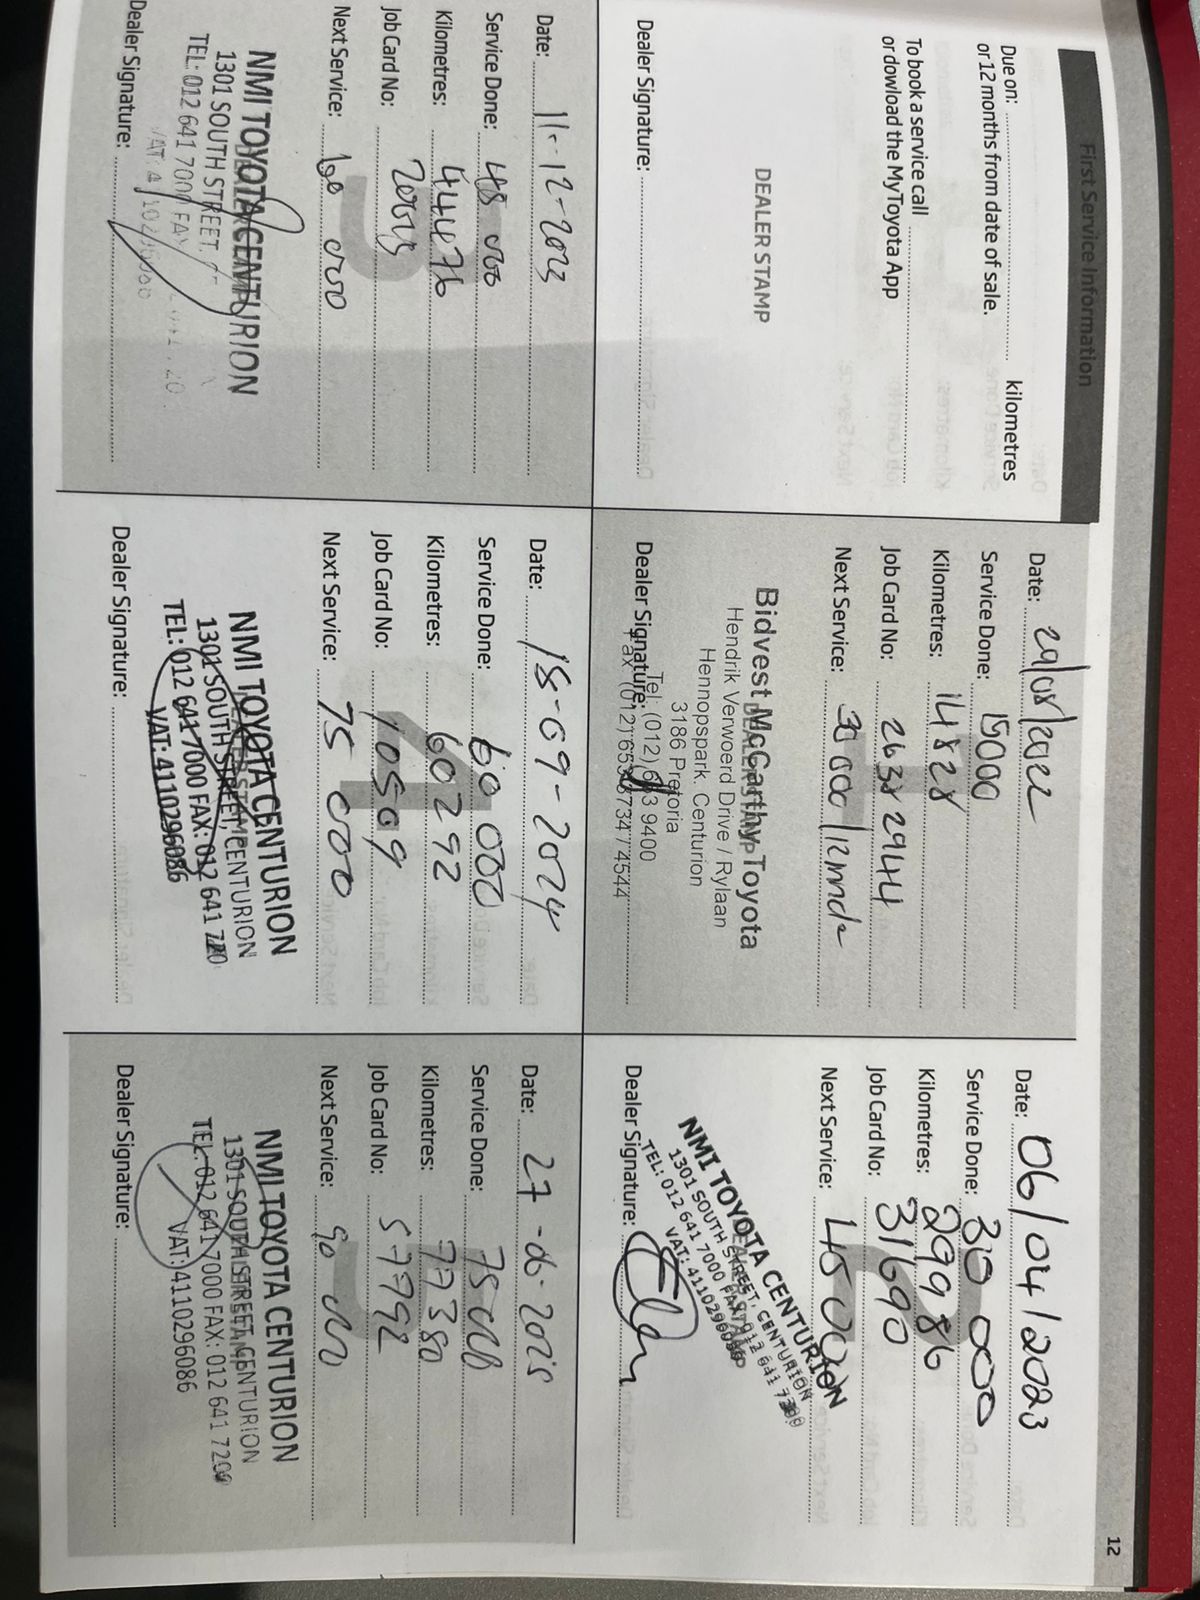 12
First Service Information
Due on: kilometres
or 12 months from date of sale.
To book a service call
or dowload the MyToyota App
DEALER STAMP
Dealer Signature:
Date: 29/08/2022
Service Done: 15000
Kilometres: 14828
Job Card No: 26382944
Next Service: 30 000/12mnde
Bidvest McCarthy Toyota
Hendrik Verwoerd Drive / Rylaan
Hennopspark. Centurion
3186 Pretoria
Tel. (012) 653 9400
Dealer Signature:
Date: 06/04/2023
Service Done: 30 000
Kilometres: 29986
Job Card No: 31690
Next Service: 45 000
NMI TOYOTA CENTURION
1301 SOUTH STREET, CENTURION
TEL: 012 641 7000 FAX: 012 641 7200
VAT: 4110296086
Dealer Signature:
Date: 11-12-2023
Service Done: 45 000
Kilometres: 44476
Job Card No:
Next Service: 60 000
NMI TOYOTA CENTURION
1301 SOUTH STREET,
TEL: 012 641 7000 FAX
Dealer Signature:
Date: 18-09-2024
Service Done: 60 000
Kilometres: 60292
Job Card No: 10509
Next Service: 75 000
NMI TOYOTA CENTURION
1301 SOUTH STREET, CENTURION
TEL: 012 641 7000 FAX: 012 641 720
VAT: 4110296086
Dealer Signature:
Date: 27-06-2025
Service Done: 75 000
Kilometres: 77380
Job Card No: 57792
Next Service: 90 000
NMI TOYOTA CENTURION
1301 SOUTH STREET, CENTURION
TEL: 012 641 7000 FAX: 012 641 7200
VAT: 4110296086
Dealer Signature: